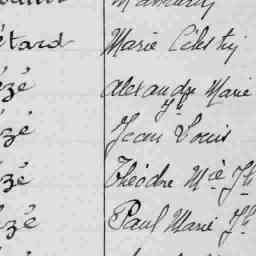 étard Marie Célestin
zé Alexandre Marie
Jh
zé Jean Louis
zé Théodore Mie Jh
zé Paul Marie Jh